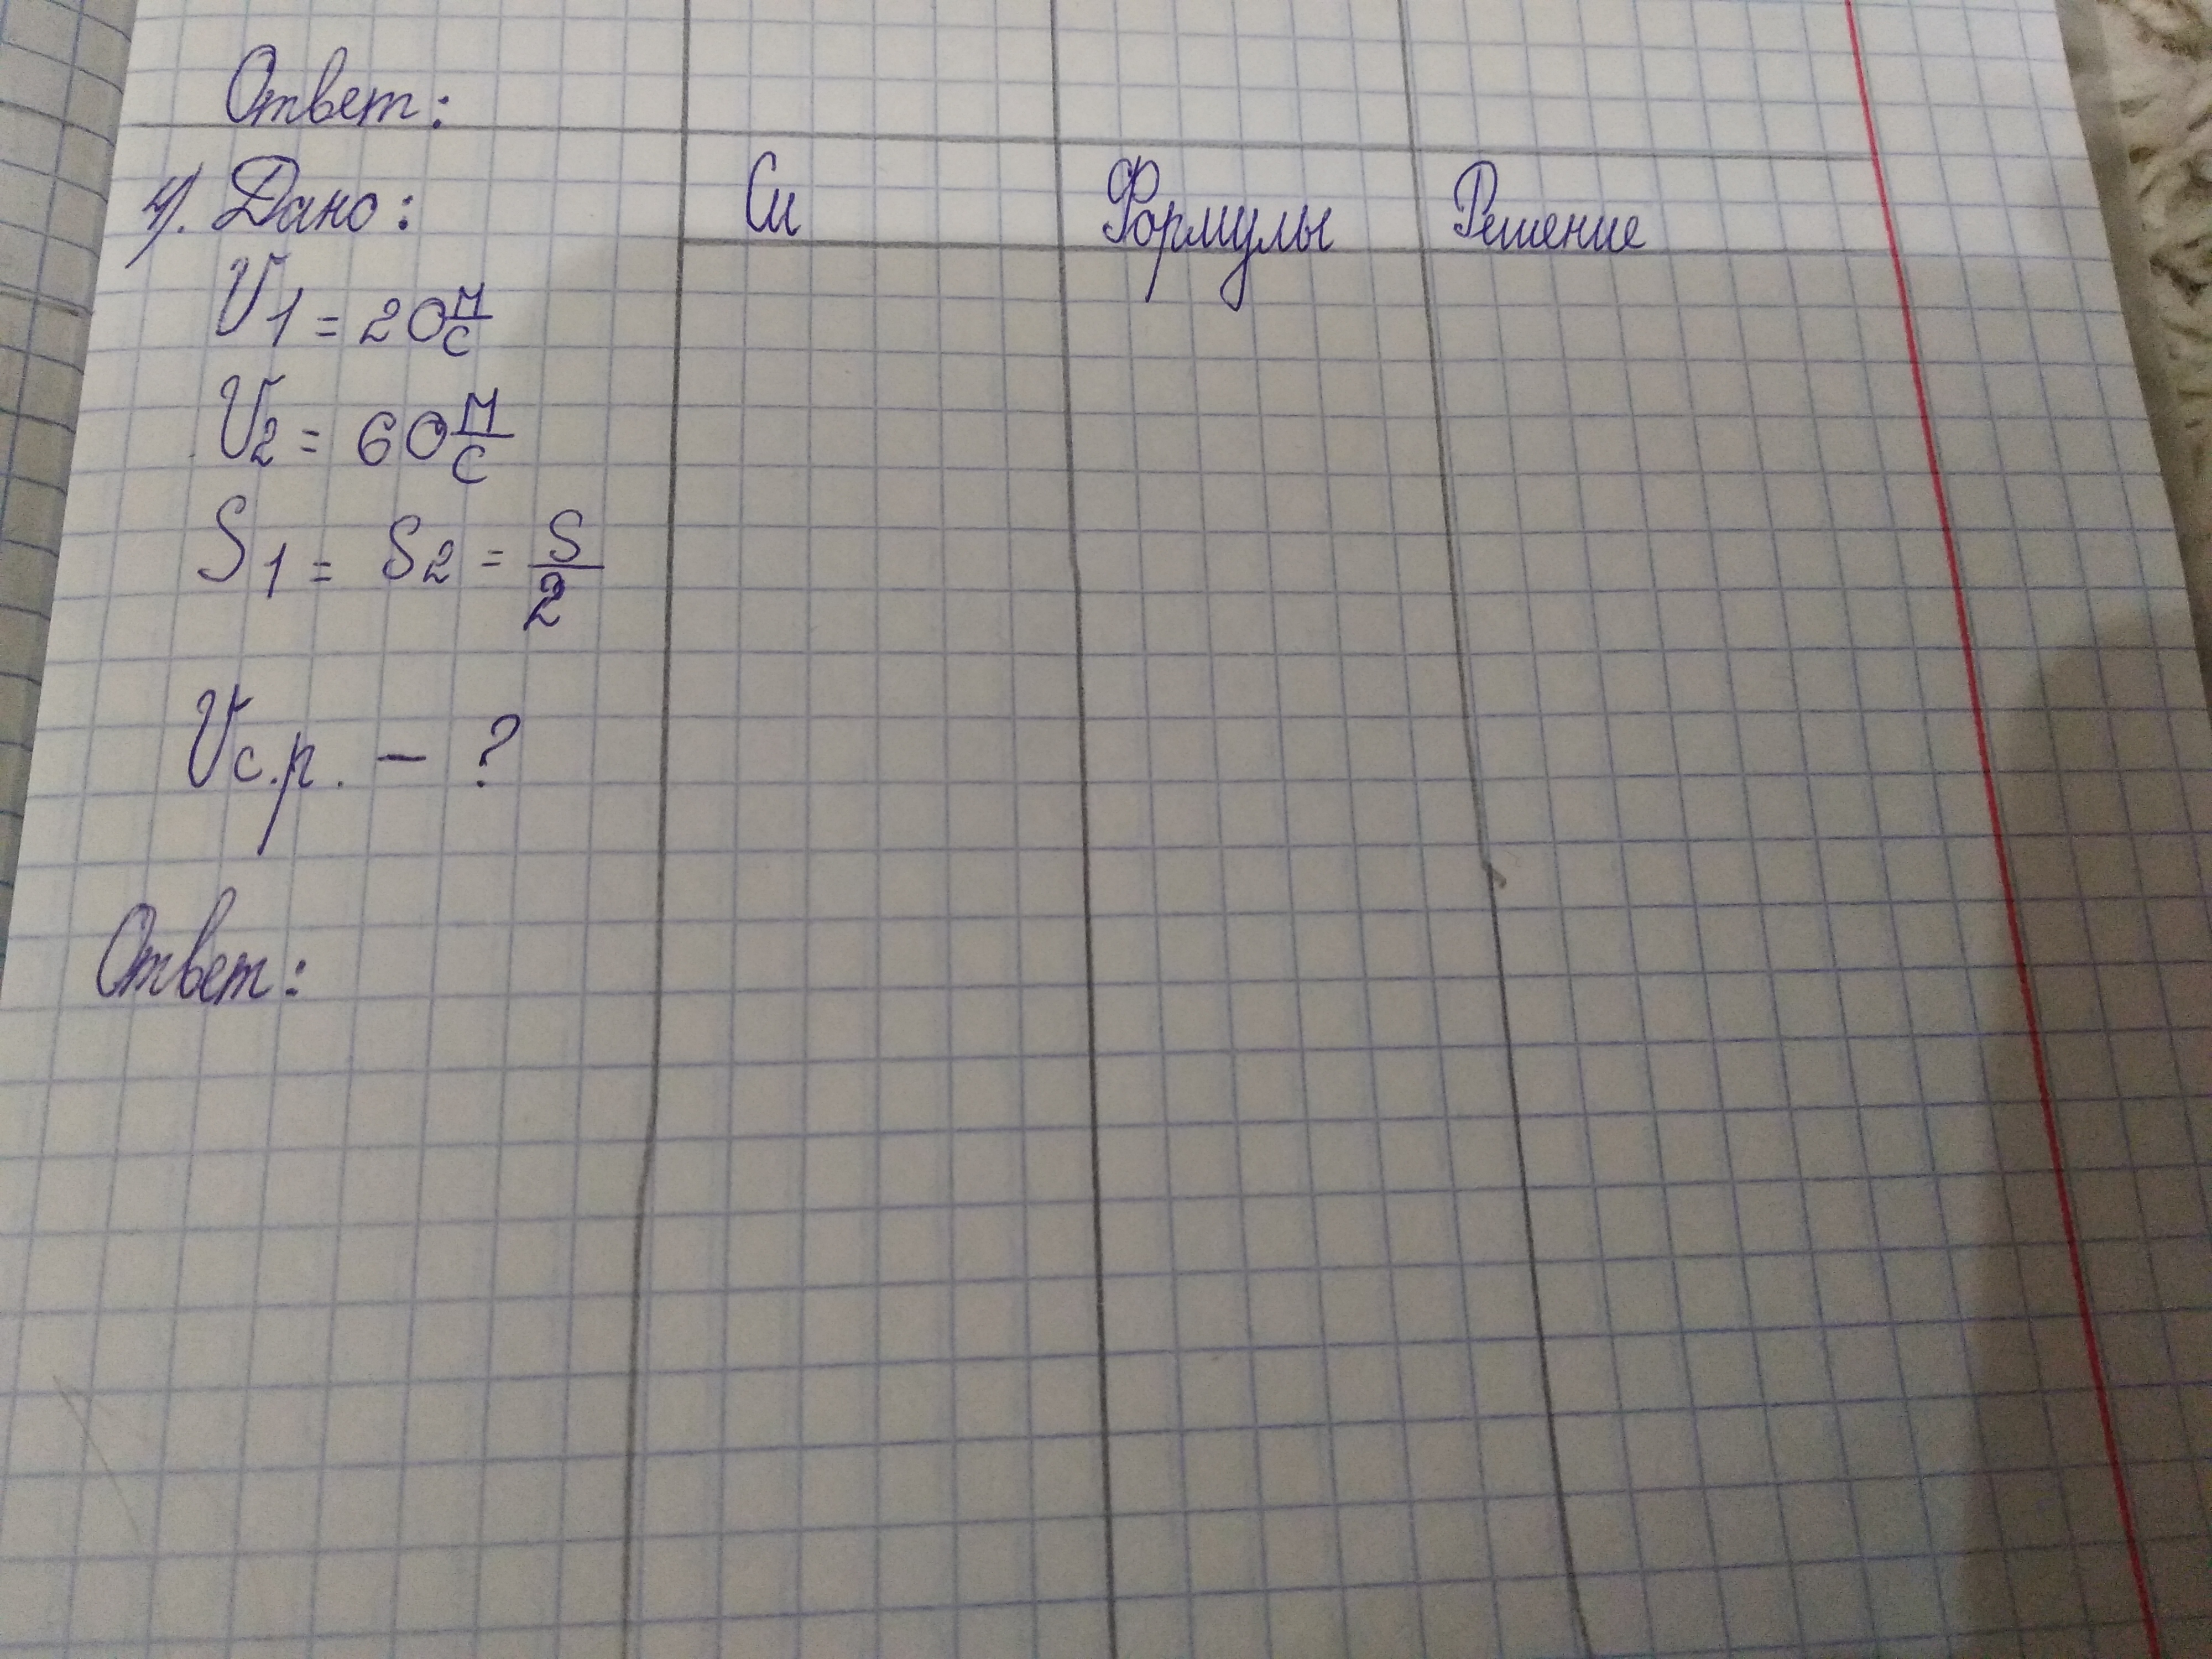 Ответ:
4). Дано: Си Формулы Решение
V1 = 20 м/с
V2 = 60 м/с
S1 = S2 = S/2
Vс.р. – ?
Ответ: